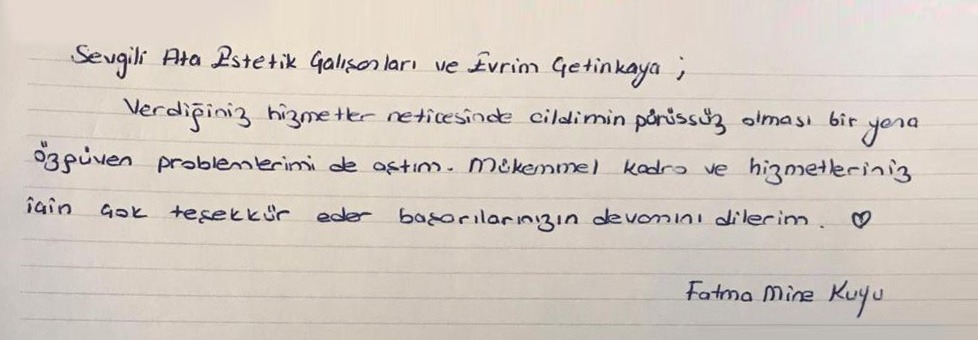 Sevgili Ata Estetik Çalışanları ve Evrim Çetinkaya ;
Verdiğiniz hizmetler neticesinde cildimin pürüssüz olması bir yana
özgüven problemlerimi de aştım. Mükemmel kadro ve hizmetleriniz
için çok teşekkür eder başarılarınızın devamını dilerim. ♡
Fatma Mine Kuyu